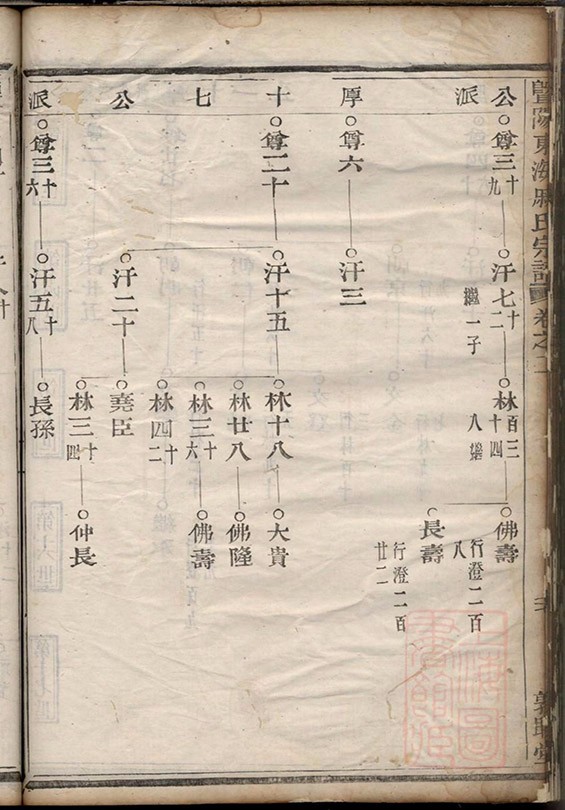 暨陽東海戚氏宗譜 卷之二
公 尊三十九 汗七十二 林百三十四 佛壽
繼一子 八繼 行澄二百八
派 長壽
行澄二百廿二
厚 尊六 汗三
十 尊二十 汗十五 林十八 大貴
林廿八 佛隆
七 林三十六 佛壽
林四十二
公 汗二十 堯臣
林三十四 仲長
派 尊三十六 汗五十八 長孫
上海圖書館藏